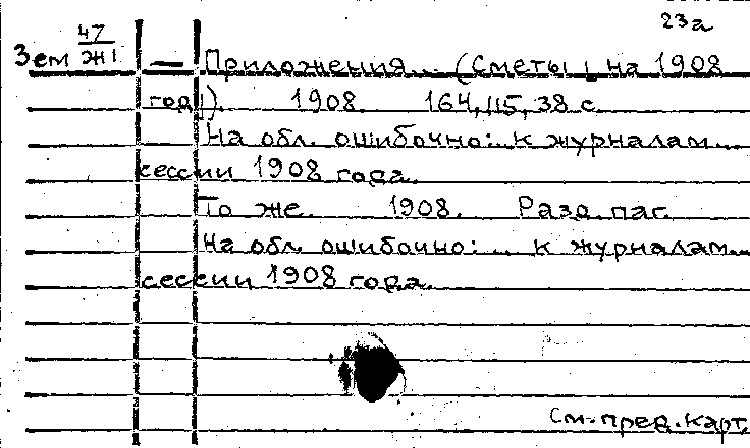 23а
47
Зем Ж1 — Приложения... (Сметы на 1908
год). 1908. 164, 115, 38 с.
На обл. ошибочно: к журналам...
сессии 1908 года.
То же. 1908. Разд. паг.
На обл. ошибочно: ... к журналам...
сессии 1908 года.
См. пред. карт.